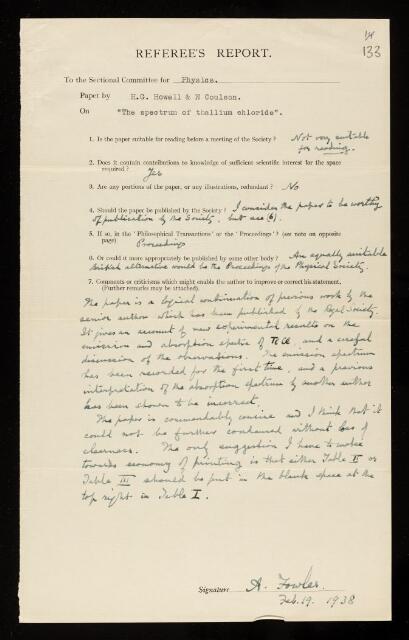 133
REFEREE'S REPORT.
To the Sectional Committee for Physics.
Paper by H.G. Howell & N Coulson.
On "The spectrum of thallium chloride".
1. Is the paper suitable for reading before a meeting of the Society ? Not very suitable
for reading.
2. Does it contain contributions to knowledge of sufficient scientific interest for the space
required ? Yes
3. Are any portions of the paper, or any illustrations, redundant ? No
4. Should the paper be published by the Society ? I consider the paper to be worthy
of publication by the Society, but see (6).
5. If so, in the 'Philosophical Transactions' or the 'Proceedings' ? (see note on opposite
page) Proceedings
6. Or could it more appropriately be published by some other body ? An equally suitable
British alternative would be the Proceedings of the Physical Society.
7. Comments or criticisms which might enable the author to improve or correct his statement.
(Further remarks may be attached).
The paper is a logical continuation of previous work by the
senior author which has been published by the Royal Society.
It gives an account of new experimental results on the
emission and absorption spectra of TlCl, and a careful
discussion of the observations. The emission spectrum
has been recorded for the first time, and a previous
interpretation of the absorption spectrum by another author
has been shown to be incorrect.
The paper is commendably concise and I think that it
could not be further condensed without loss of
clearness. The only suggestion I have to make
towards economy of printing is that either Table II or
Table III should be put in the blank space at the
top right in Table I.
Signature A. Fowler.
Feb. 19. 1938